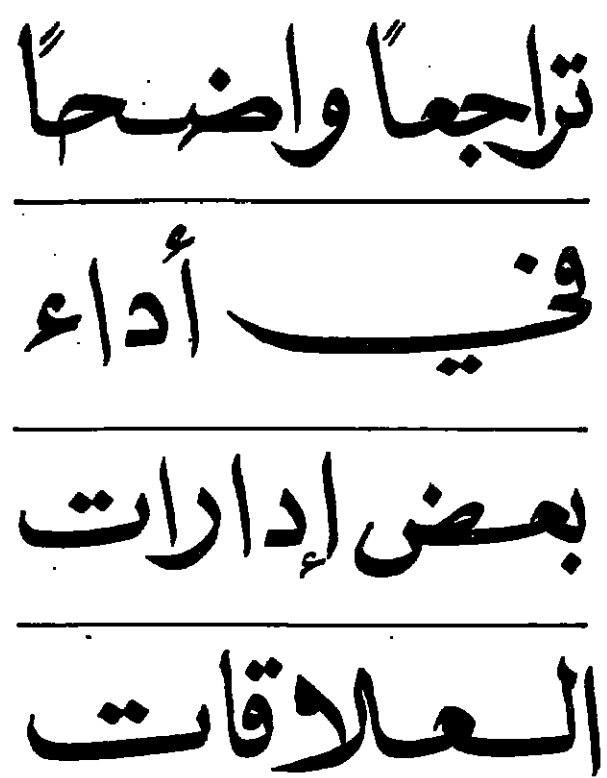 تراجعاً واضحاً
في أداء
بعض إدارات
العلاقات